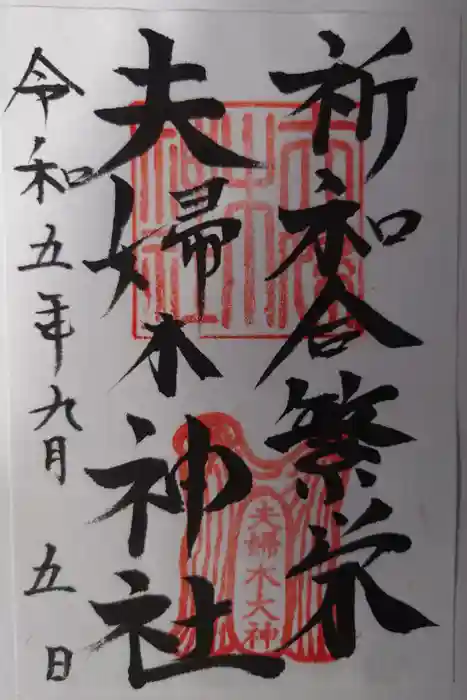 祈和合繁栄
夫婦木神社
令和五年九月五日
夫婦木大神